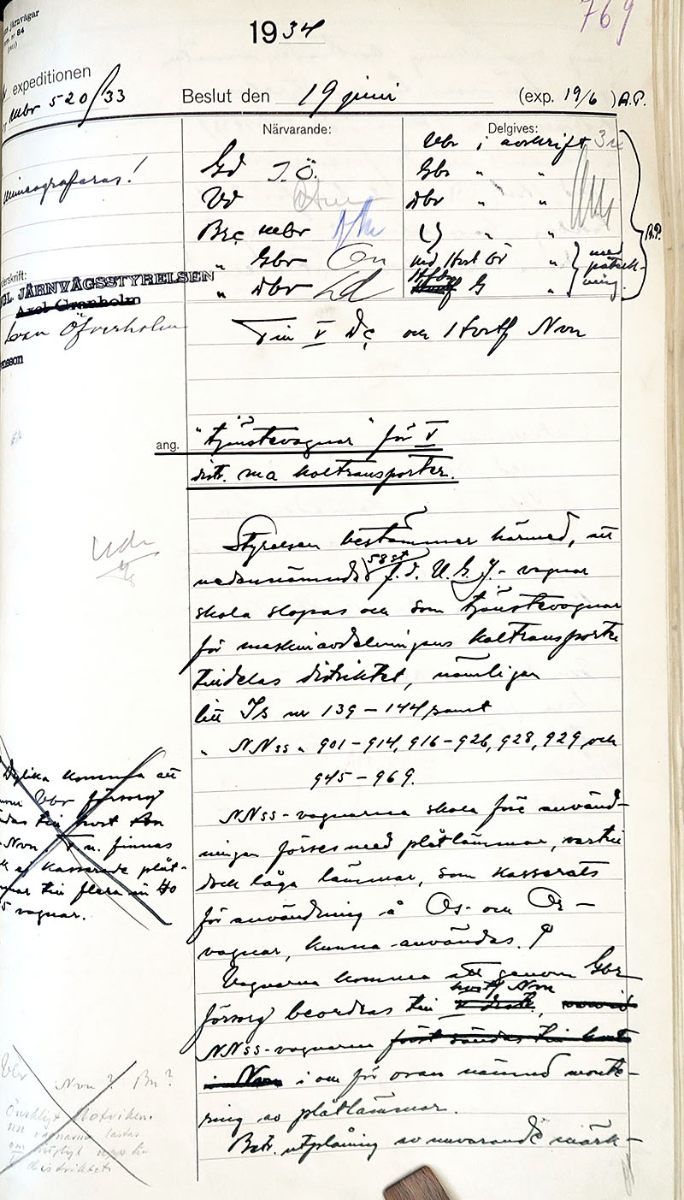 769
järnvägar
84
1934
expeditionen
Mbr 520/33
Beslut den 19 juni (exp. 19/6) A.P.
Närvarande:
Delgives:
Vbr i avskrift
Gd I.Ö.
Gbr " "
Vd
Dbr " "
Bsç mbr
" "
" Gbr
" Dbr
G "
A.P.
med påteckning
KGL JÄRNVÄGSSTYRELSEN
Axel Granholm
Öfverholm
Till V Dç och Hvstf Nvn
ang. "tjänstevagnar" för V
distr. ma koltransporter.
Styrelsen bestämmer härmed, att
nedannämnda 58 st f.d. U.G.J.-vagnar
skola slopas och som tjänstevagnar
för maskinavdelningens koltransporter
tilldelas distriktet, nämligen
litt Is nr 139 – 144 samt
" NNss " 901–914, 916–926, 928, 929 och
945–969.
NNss-vagnarna skola före använd-
ningen förses med plåtlämmar, vartill
dock låga lämmar, som kasserats
för användning å Os- och Or-
vagnar, kunna användas.
Vagnarna komma att genom Gbr
försorg beordras till hvstf Nvn,
NNss-vagnarna först sändas till
i Nvn i och för ovan nämnd monte-
ring av plåtlämmar.
Betr. utplåning av nuvarande märk-
Dylika komma att
genom Vbr försorg
sändas till
Nvn finnas
ej kasserade plåt-
lämmar till flera än 40
vagnar.
Vbr
Nvn? Bn?
Önskligt
vagnarna lastas
om möjligt
distriktet